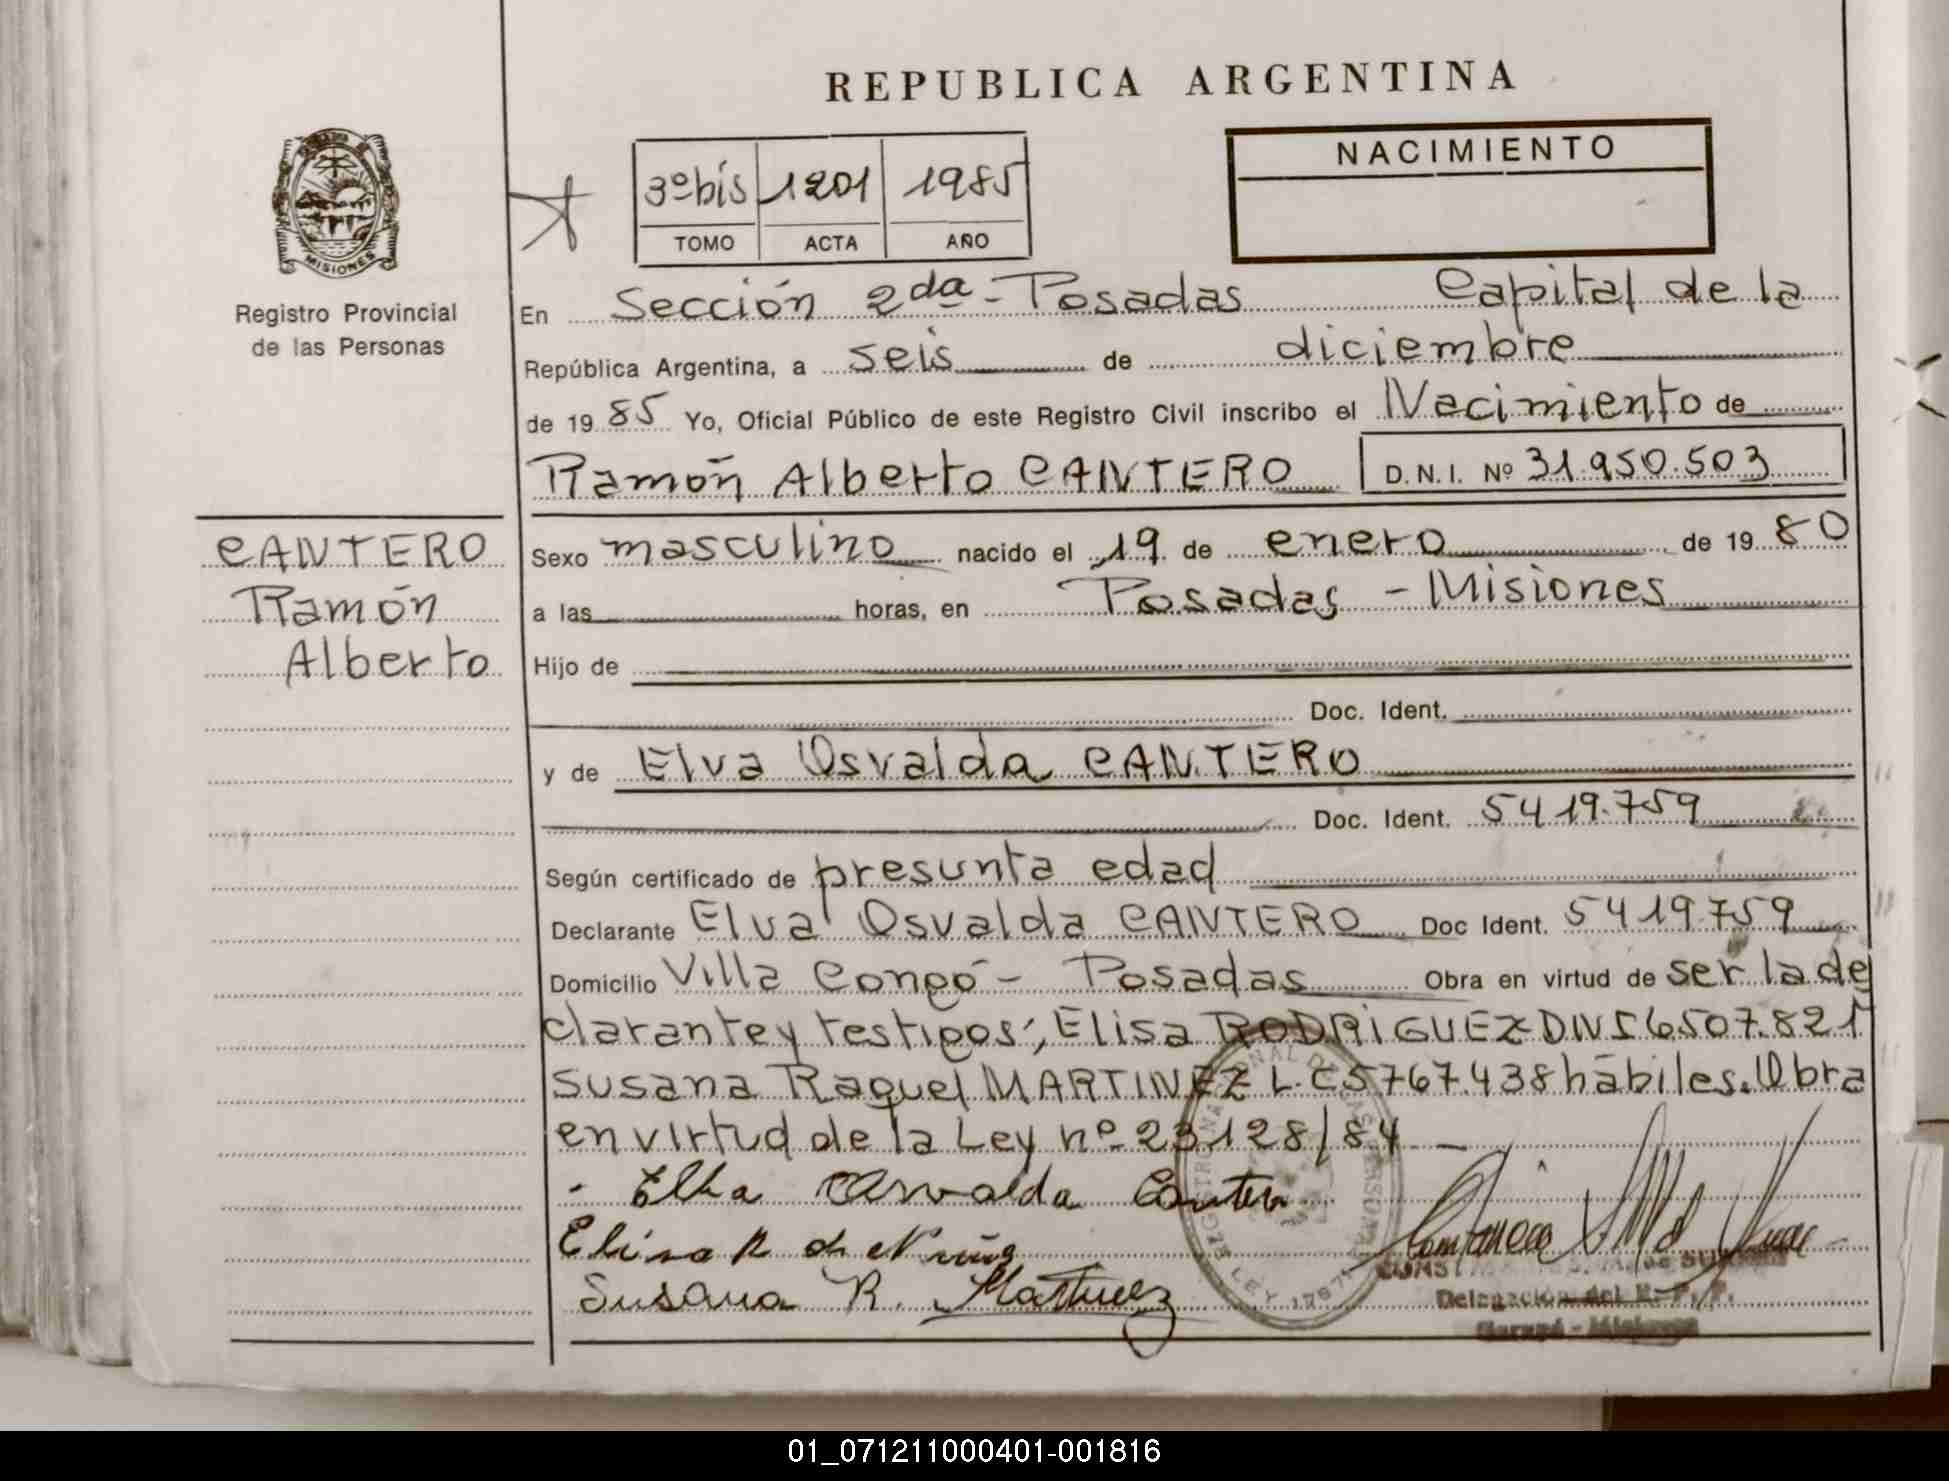 REPUBLICA ARGENTINA
NACIMIENTO
3º bis 1201 1985
TOMO ACTA AÑO
MISIONES
Registro Provincial
de las Personas
En Sección 2da - Posadas Capital de la
República Argentina, a seis de diciembre
de 19 85 Yo, Oficial Público de este Registro Civil inscribo el Nacimiento de
Ramón Alberto CANTERO D.N.I. Nº 31.950.503
CANTERO
Ramón
Alberto
Sexo masculino nacido el 19 de enero de 19 80
a las horas, en Posadas - Misiones
Hijo de
Doc. Ident.
y de Elva Osvalda CANTERO
Doc. Ident. 5419.759
Según certificado de presunta edad
Declarante Elva Osvalda CANTERO Doc Ident. 5419.759
Domicilio Villa Congó - Posadas Obra en virtud de ser la de
clarante y testigos; Elisa RODRIGUEZ DNI 6.507.821
Susana Raquel MARTINEZ L.C 5.767.438 hábiles. Obra
en virtud de la Ley nº 23.128/84
- Elba Osvalda Cantero
Elisa R de Nuñez
Susana R. Martinez
Delegación del R. P. P.
Garupá - Misiones
01_071211000401-001816